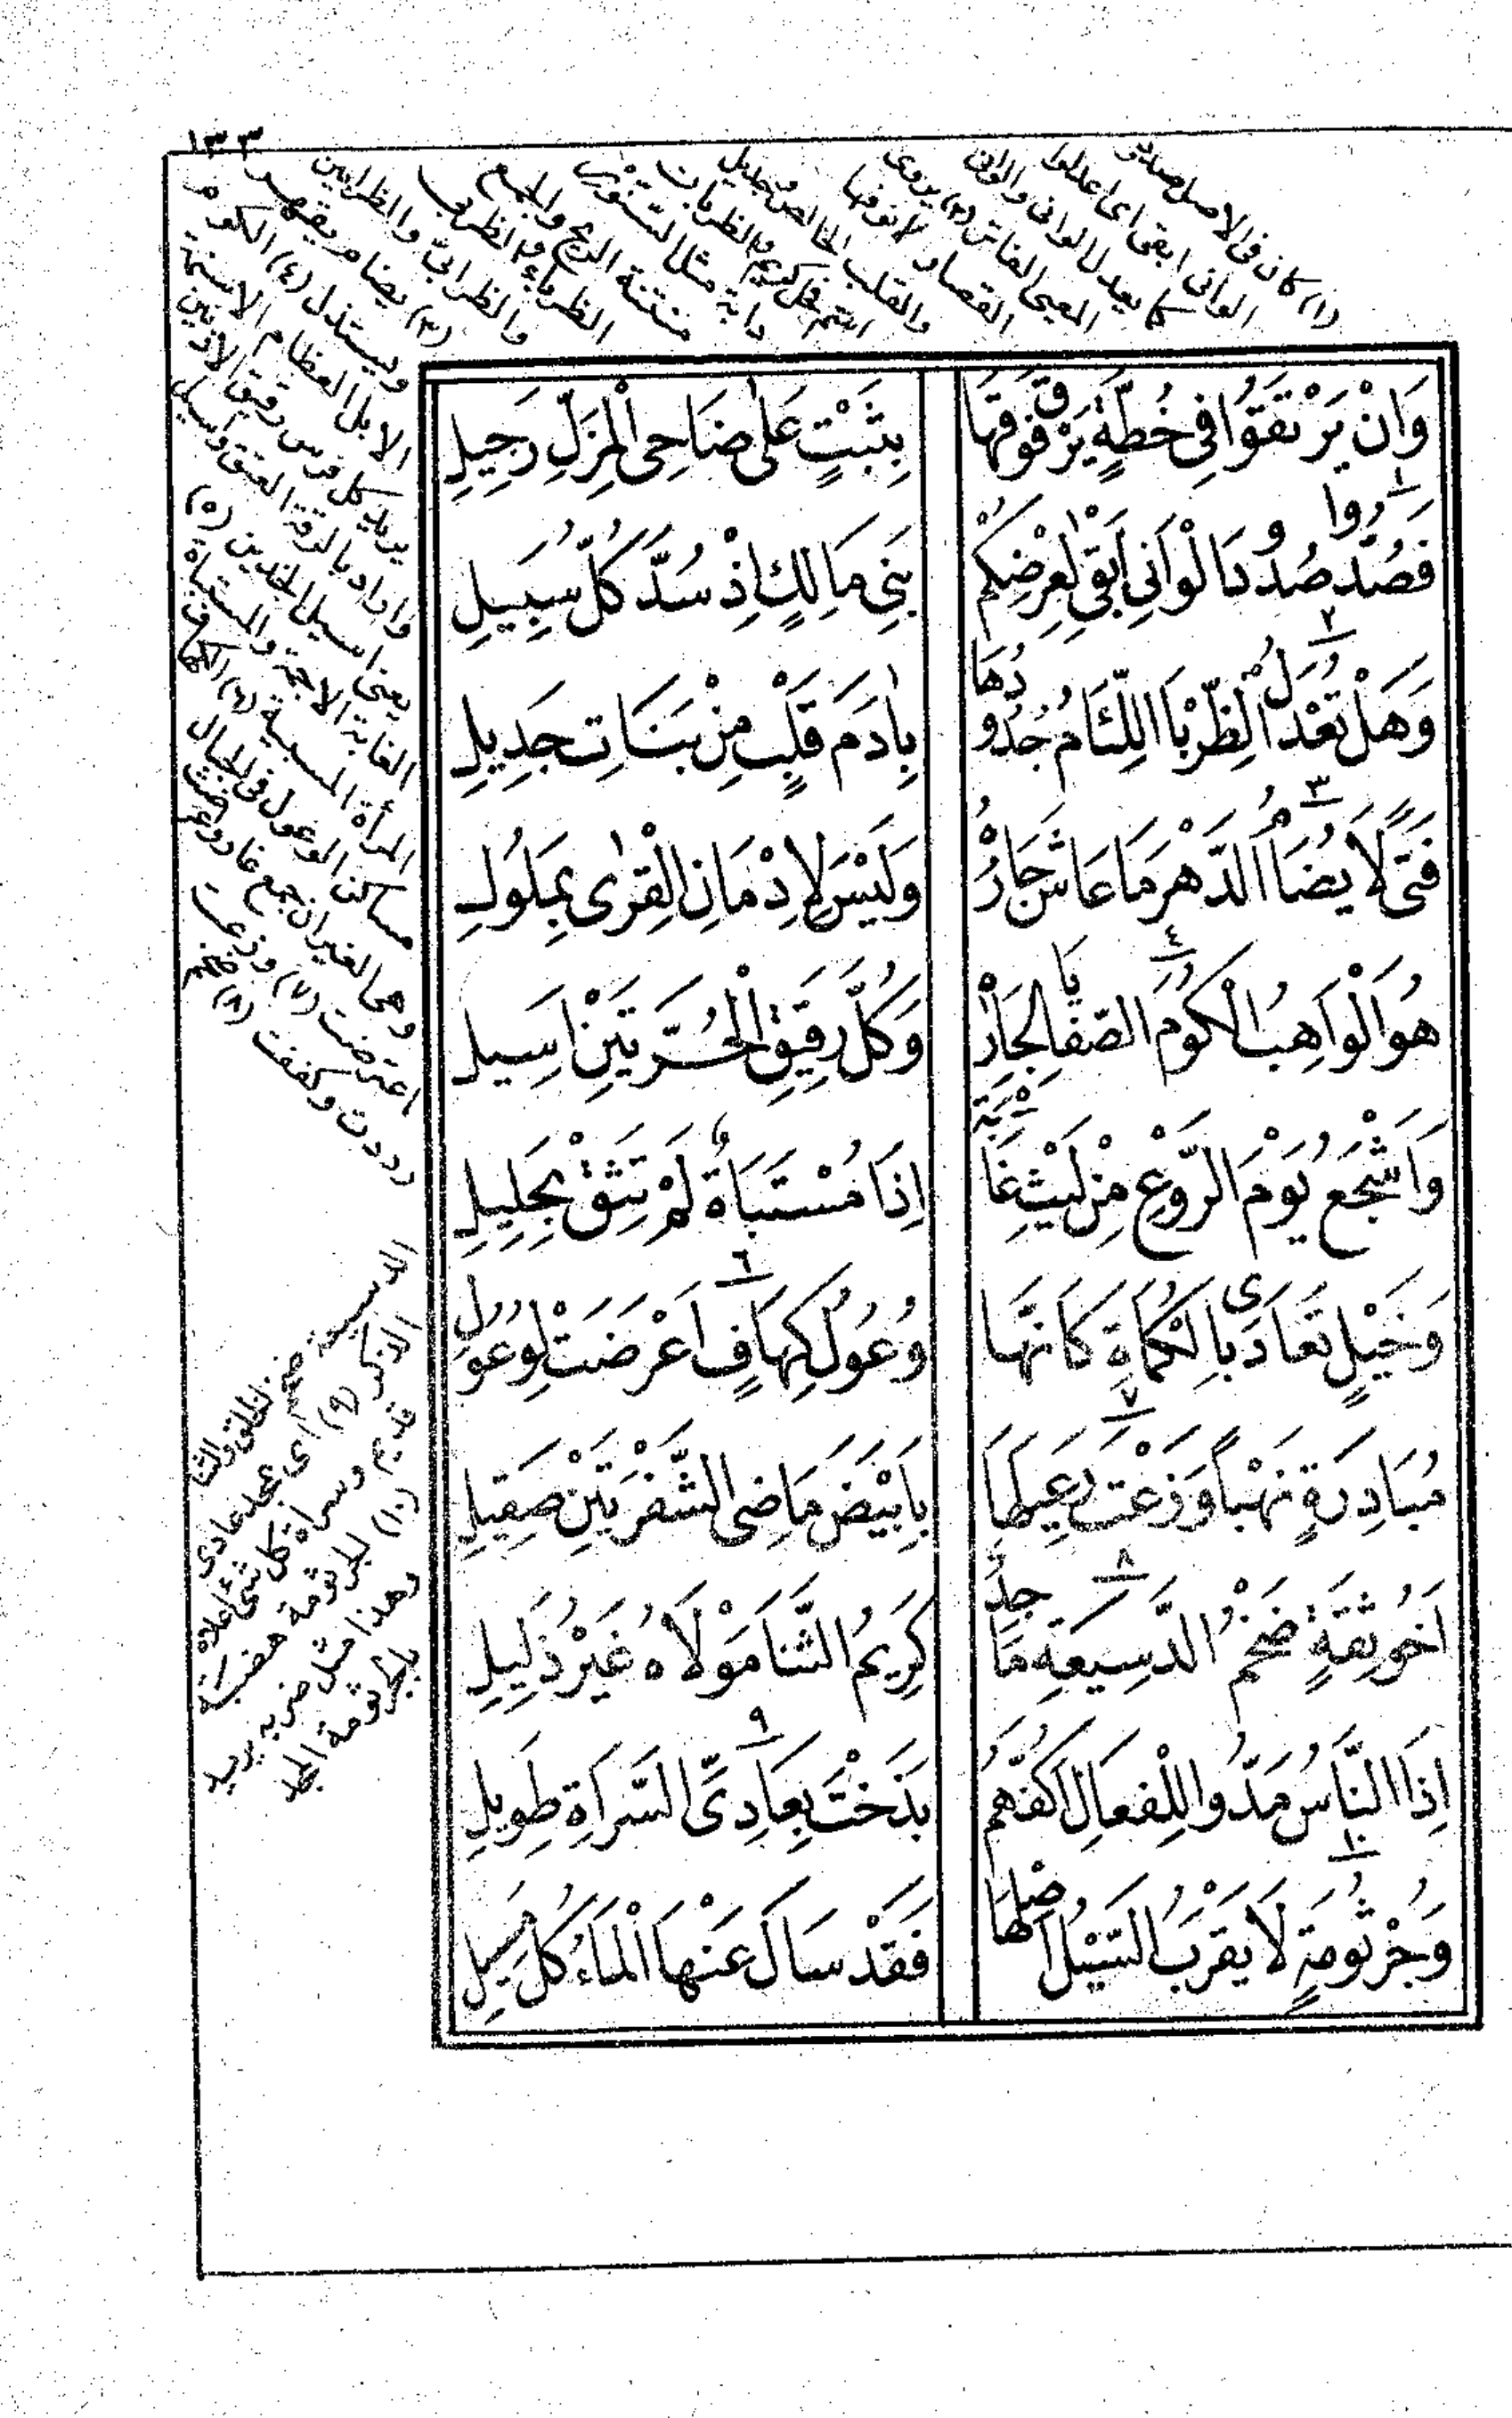 ١٣٣
وَاِنْ يَرْتَقَوْا فِى خُطَّةٍ يَرْقَ فَوْقَهَا بِثَبْتٍ عَلٰى ضَاحِى الْمَزَلِّ رَجِيلِ
فَصُدّوا صُدُودَ الْوَانِى اَبْقٰى لِعِرْضِكُمْ بَنِى مَالِكٍ اِذْ سُدَّ كُلُّ سَبِيلِ
وَهَلْ تَعْدِلُ الظِّرْبَا اللِّئَامُ جُدُودُهَا بِاٰدَمَ قَلْبٍ مِنْ بَنَاتِ جَدِيلِ
فَتًى لَا يُضَامُ الدَّهْرَ مَا عَاشَ جَارُهُ وَلَيْسَ لِاِدْمَانِ الْقِرٰى بِمَلُولِ
هُوَ الْوَاهِبُ الْكُومَ الصَّفَايَا لِجَارِهِ وَكُلَّ رَقِيقِ الْحُرَّتَيْنِ اَسِيلِ
وَاَشْجَعُ يَوْمَ الرَّوْعِ مِنْ لَيْثِ غَابَةٍ اِذَا مُسْتَبَاةٌ لَمْ تَثِقْ بِحَلِيلِ
وَخَيْلٍ تَعَادَى بِالْكُمَاةِ كَاَنَّهَا وُعُولُ كِهَافٍ اَعْرَضَتْ لِوُعُولِ
مُبَادِرَةٍ نَهْبًا وَزَعْتَ رَعِيلَهَا بِاَبْيَضَ مَاضِى الشَّفْرَتَيْنِ صَقِيلِ
اَخُو ثِقَةٍ ضَخْمُ الدَّسِيعَةِ مَاجِدٌ كَرِيمُ الثَّنَا مَوْلَاهُ غَيْرُ ذَلِيلِ
اِذَا النَّاسُ مَدُّوا لِلْفَعَالِ اَكُفَّهُمْ بَذَخْتَ بِعَادِىِّ السَّرَاةِ طَوِيلِ
وَجُرْثُومَةٍ لَا يَقْرَبُ السَّيْلُ اَصْلَهَا فَقَدْ سَالَ عَنْهَا الْمَاءُ كُلَّ مَسِيلِ
(١) كان فى الاصل صدت
الوانى ابقى اى اعدلوا
كما يعدل الوانى والوانى
المعيى الفاتر (٢) يروى
القصار انوفها
والقلب الخالص وجديل
دابة مثل السنور
منتنة الريح والجمع
الظرباء والظربا
والظرابى والظرابين
(٣) يضام يقهر
ويستذل (٤) الكوم
الابل العظام الاسنمة
يريد كل فرس رقيق الاذنين
واراد بالرقة العتق واسيل
يعنى اسيل الخدين (٥)
الغابة الاجمة والمستباة
المرأة المسبية (٦) الكهاف
مساكن الوعول فى الجبال
وهى الغيران جمع غار واعرضت
اعترضت (٧) وزعت
رددت وكففت (٨) ضخم
الدسيعة ضخم الخلق والثنا
الذكر (٩) اى بمجد عادى
قديم وسراة كل شئ اعلاه
(١٠) الجرثومة هضبة
وهذا مثل ضربه يريد
بالجرثومة المجد